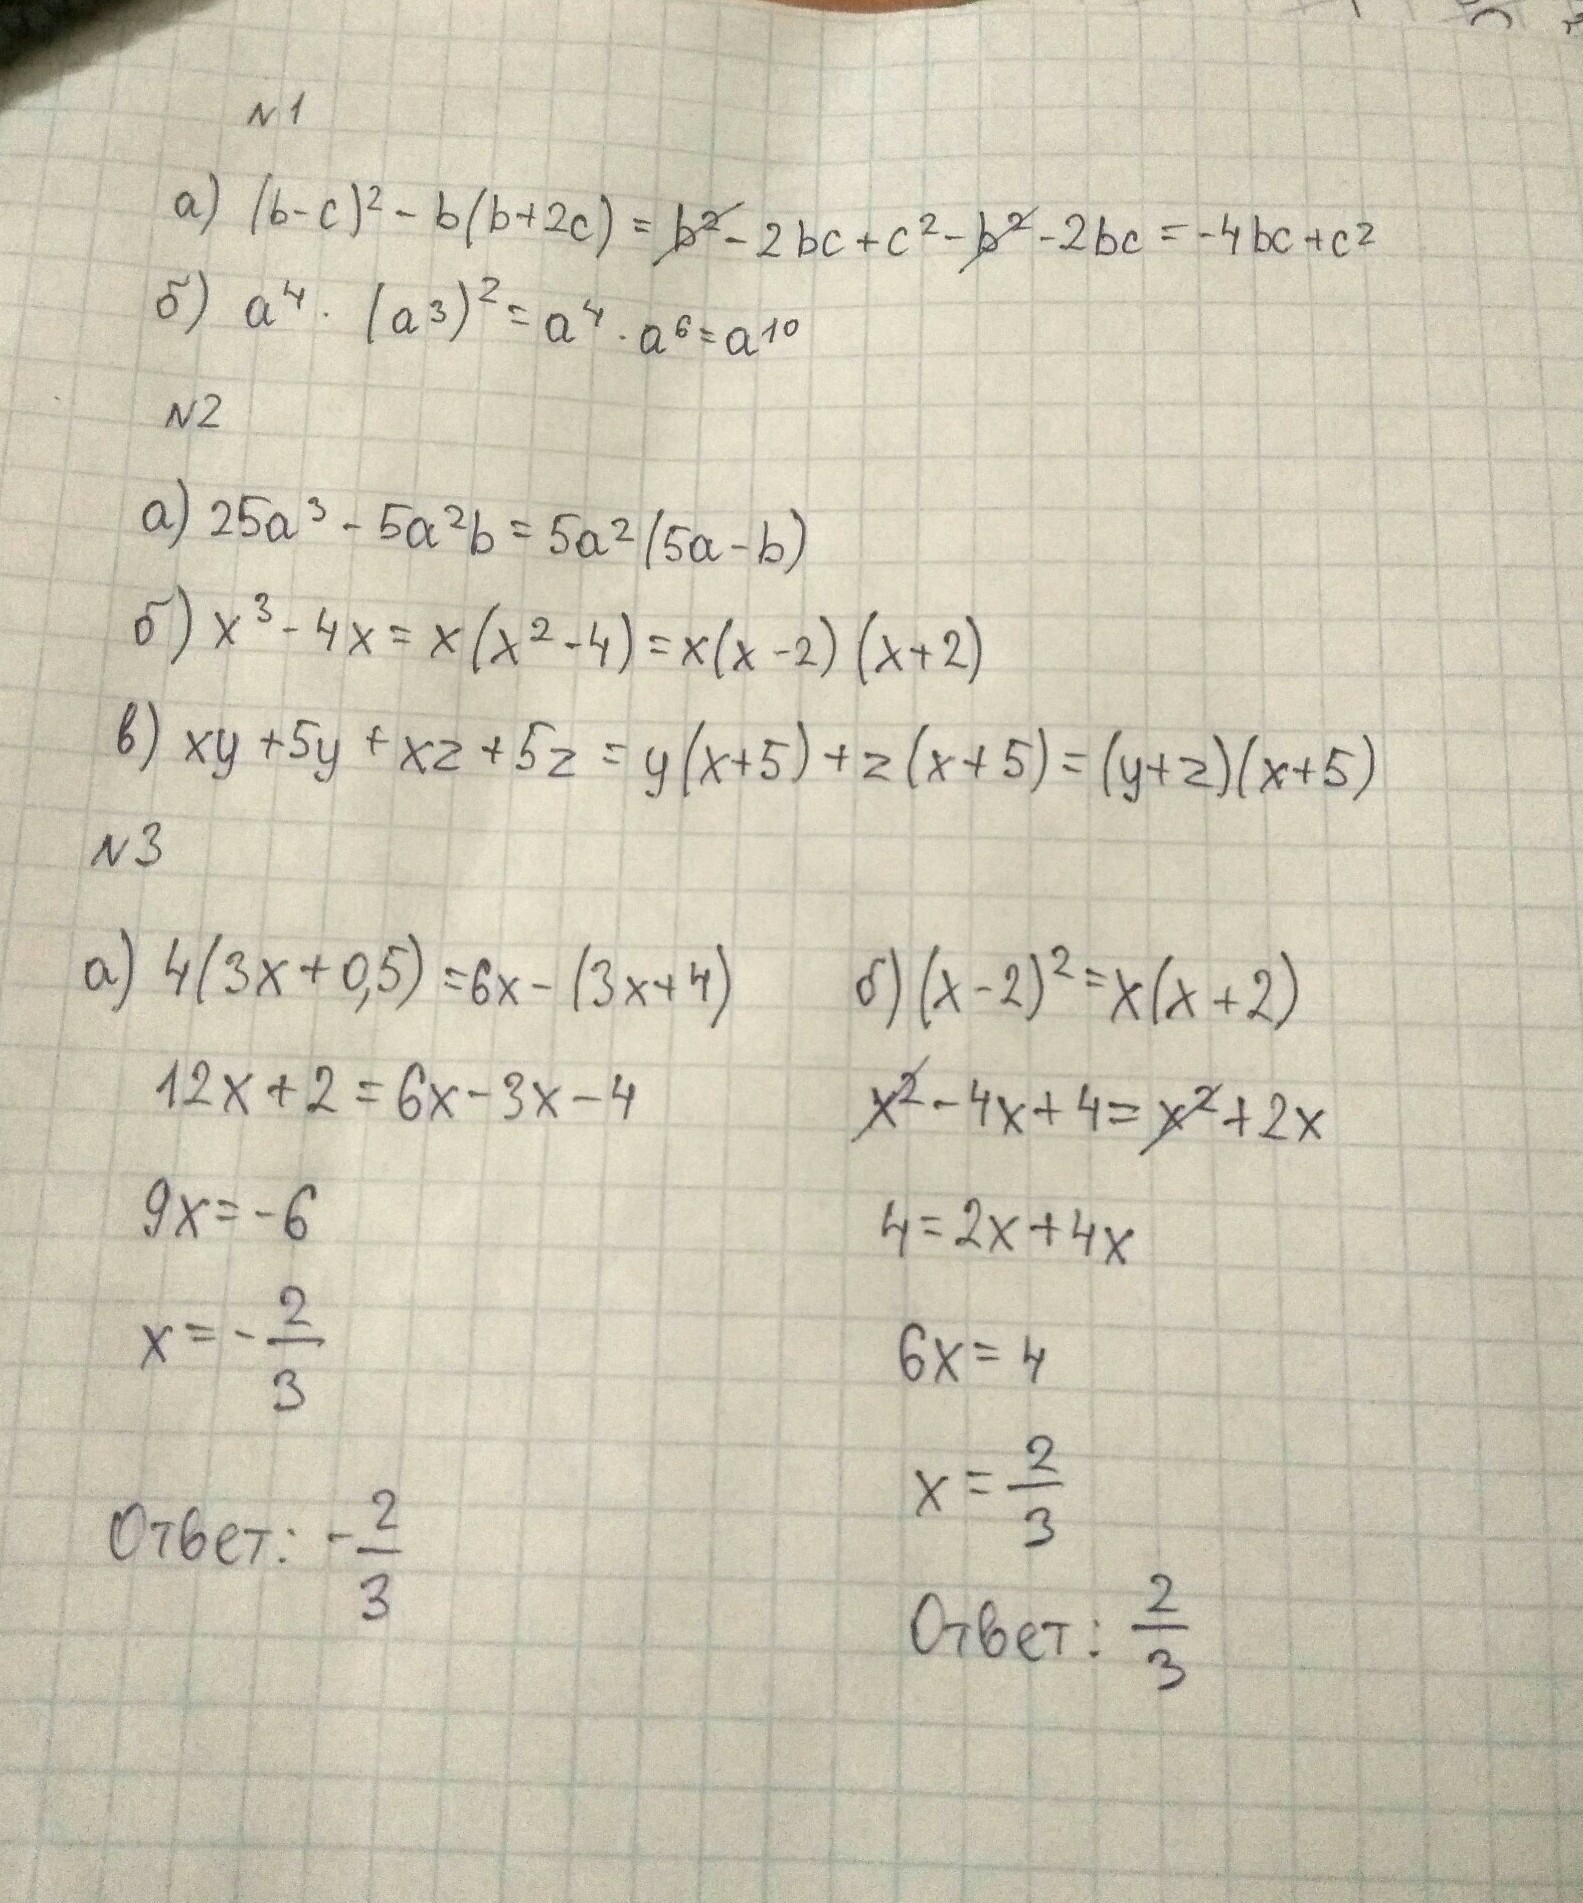 N1
а) (b-c)² - b(b+2c) = b² - 2bc + c² - b² - 2bc = -4bc + c²
б) a⁴ · (a³)² = a⁴ · a⁶ = a¹⁰
N2
а) 25a³ - 5a²b = 5a²(5a-b)
б) x³ - 4x = x(x²-4) = x(x-2)(x+2)
в) xy + 5y + xz + 5z = y(x+5) + z(x+5) = (y+z)(x+5)
N3
а) 4(3x+0,5) = 6x - (3x+4)
12x + 2 = 6x - 3x - 4
9x = -6
x = -2/3
Ответ: -2/3
б) (x-2)² = x(x+2)
x² - 4x + 4 = x² + 2x
4 = 2x + 4x
6x = 4
x = 2/3
Ответ: 2/3